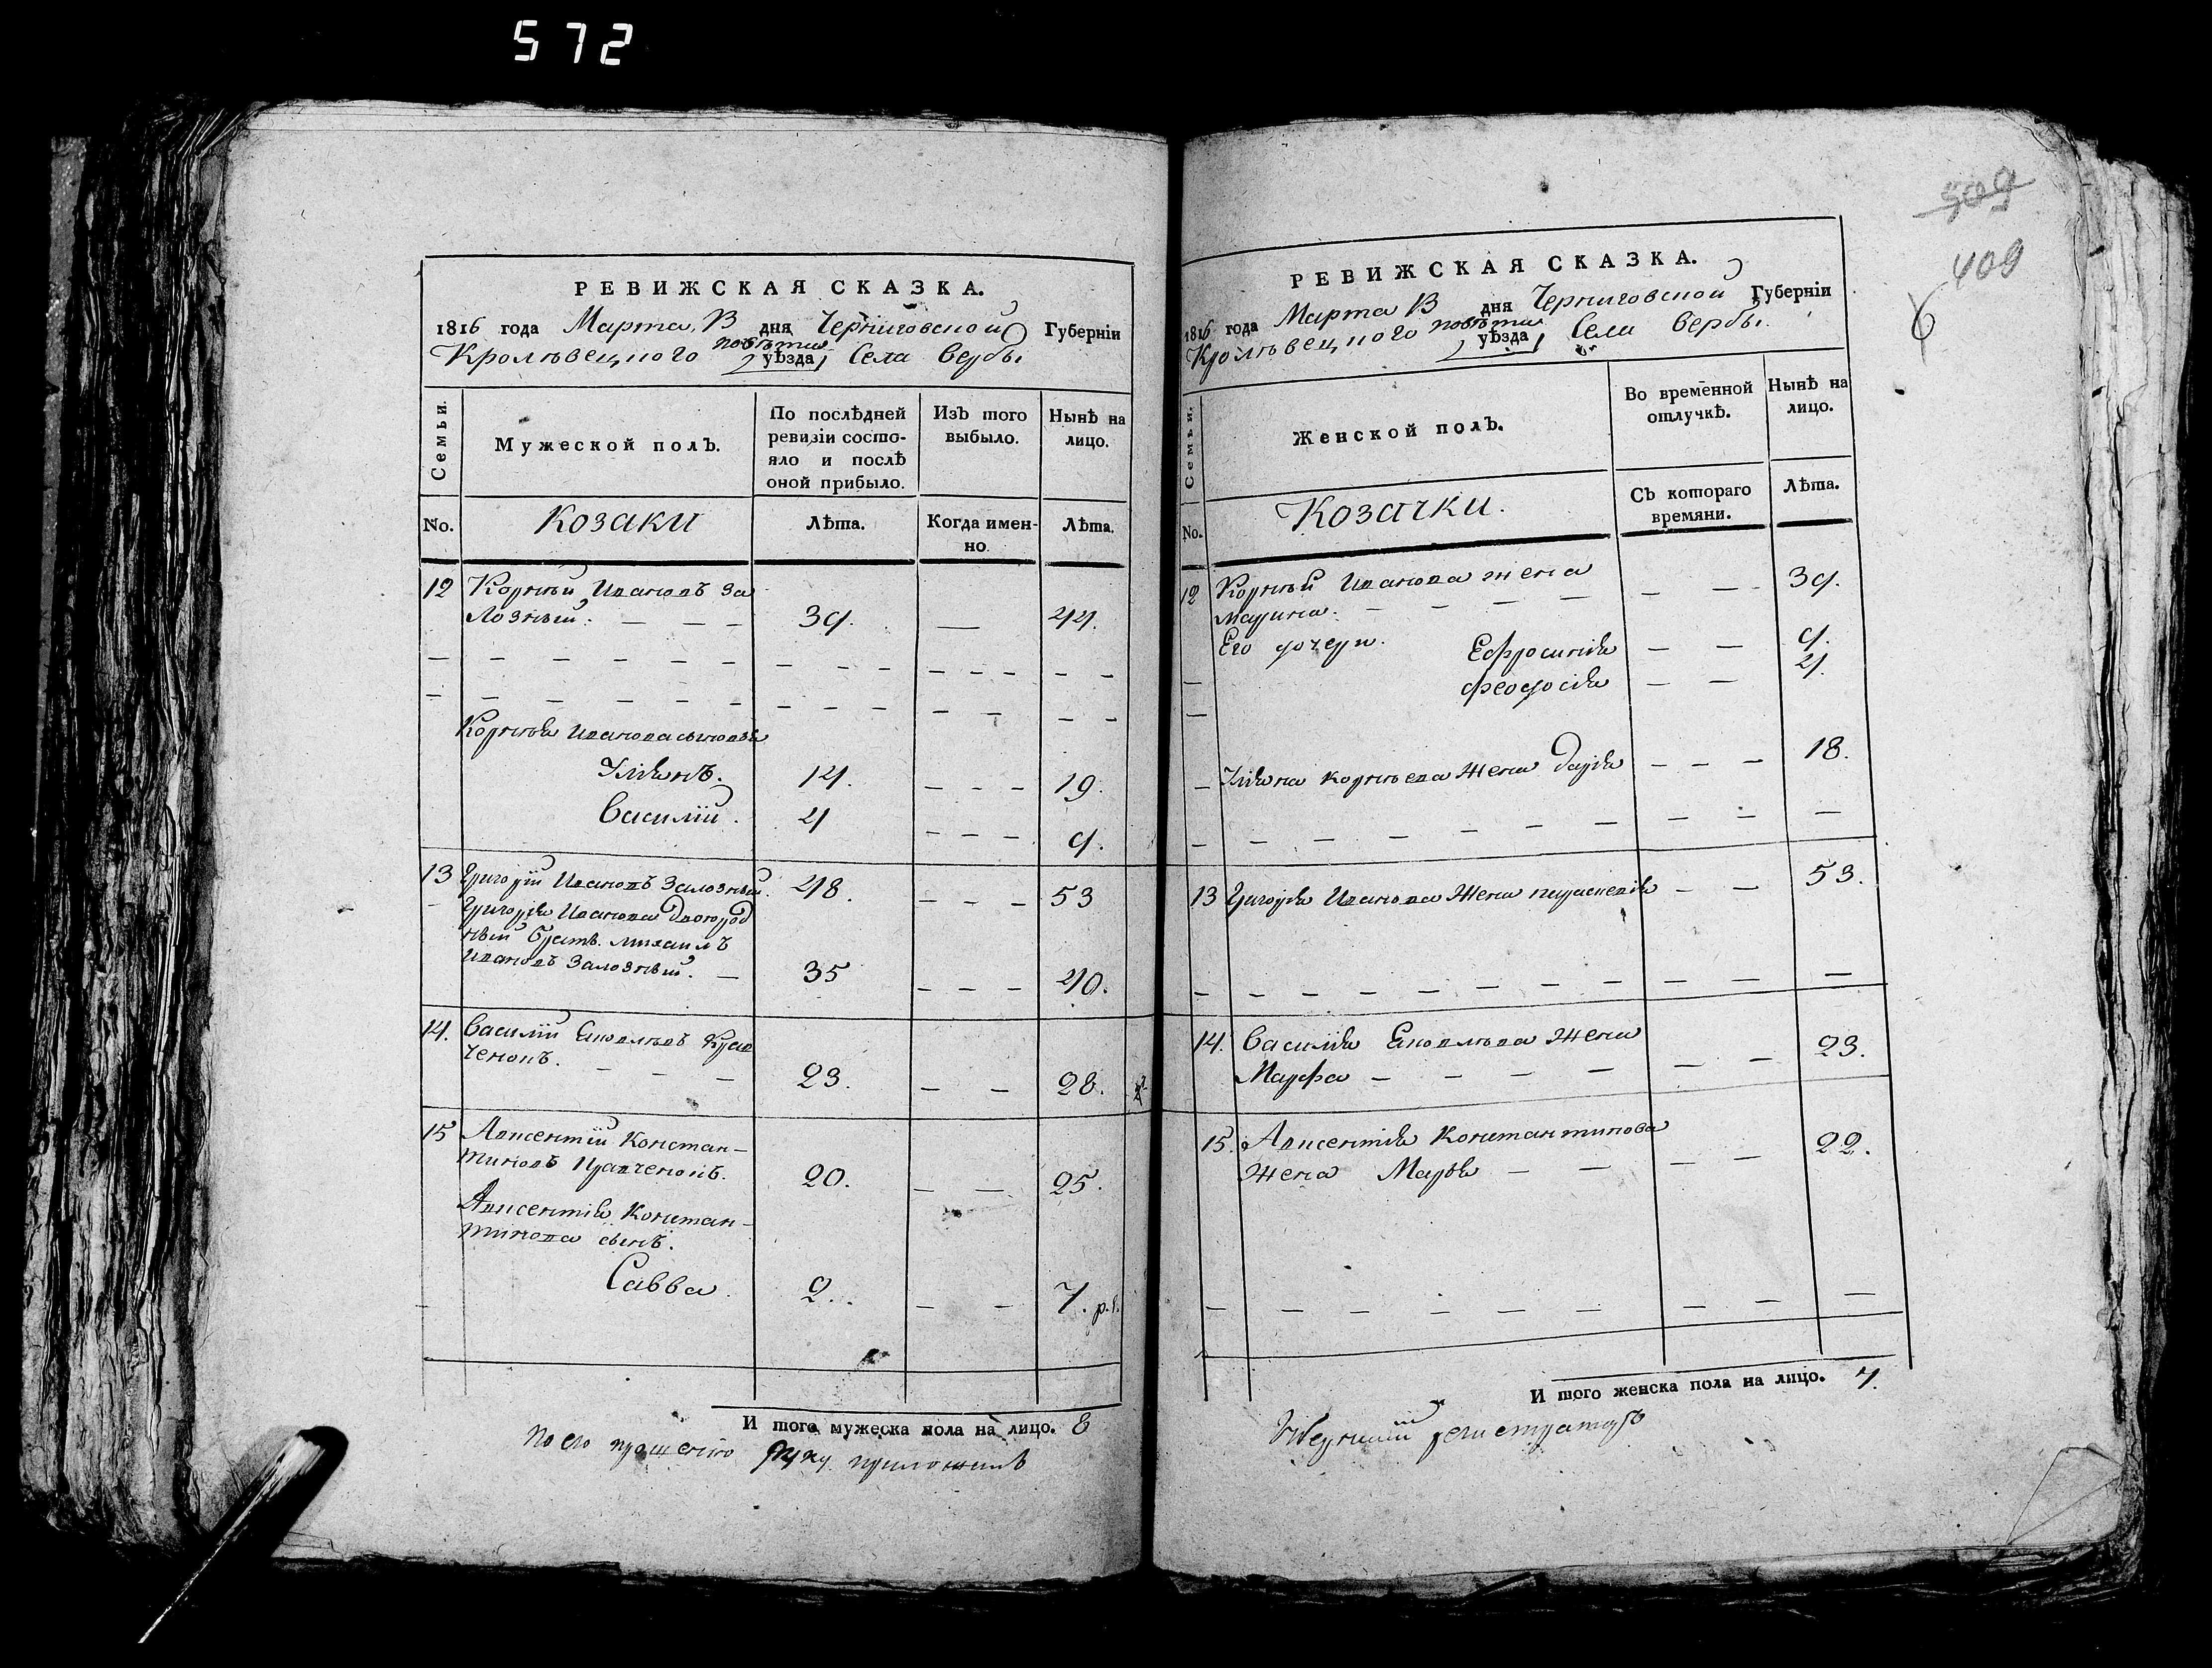 572
РЕВИЖСКАЯ СКАЗКА.
1816 года Марта, 13 дня Черниговской Губерніи
Кролѣвецкого повѣта уѣзда Села Вербы
Семьи.
Мужеской полъ.
По послѣдней ревизіи состояло и послѣ оной прибыло.
Изъ того выбыло.
Нынѣ на лицо.
No.
Козаки
Лѣта.
Когда именно.
Лѣта.
12 Корнѣй Ивановъ За
Лозный. — — — 39. — 44.
Корнѣя Иванова сыновья
Ульянъ. 14. — — — 19.
Василій. 4 — — — 9.
13 Григорій Ивановъ Залозный. 48. — — — 53
Григорія Иванова двоюрод
ный братъ. Михаилъ
Ивановъ Залозный. — 35 — — — 40.
14. Василій Яковлевъ Крав
ченокъ. — — — 23. — — 28.
15 Авксентій Констан-
тиновъ Кравченокъ. 20. — — 25.
Авксентія Констан-
тинова сынъ.
Савва. 2. — — 7. р.
И того мужеска пола на лицо. 8
по его прошенію руку приложилъ
509
409
РЕВИЖСКАЯ СКАЗКА.
1816 года Марта 13 дня Черниговской Губерніи
Кролѣвецкого повѣта уѣзда Села Вербы.
Семьи.
Женской полъ.
Во временной отлучкѣ.
Нынѣ на лицо.
No.
Козачки.
Съ котораго времяни.
Лѣта.
12 Корнѣй Иванова жена
Марина. — — — — — — 39.
Его дочери. Ефросинія — — 9.
Феодосія — — 4.
Ульяна Корнѣева жена Дарья — — — 18.
13 Григорія Иванова жена параскевія — — 53.
14. Василія Яковлева жена
Марфа — — — — — — — 23.
15. Авксентія Константинова
жена Марья — — — — 22.
И того женска пола на лицо. 7.
регистраторъ